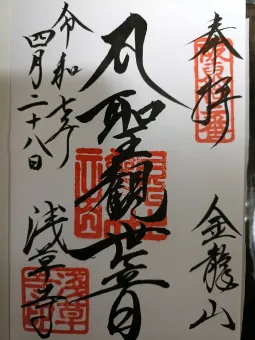 奉拝
金龍山
聖観世音
令和七年
四月二十八日
浅草寺